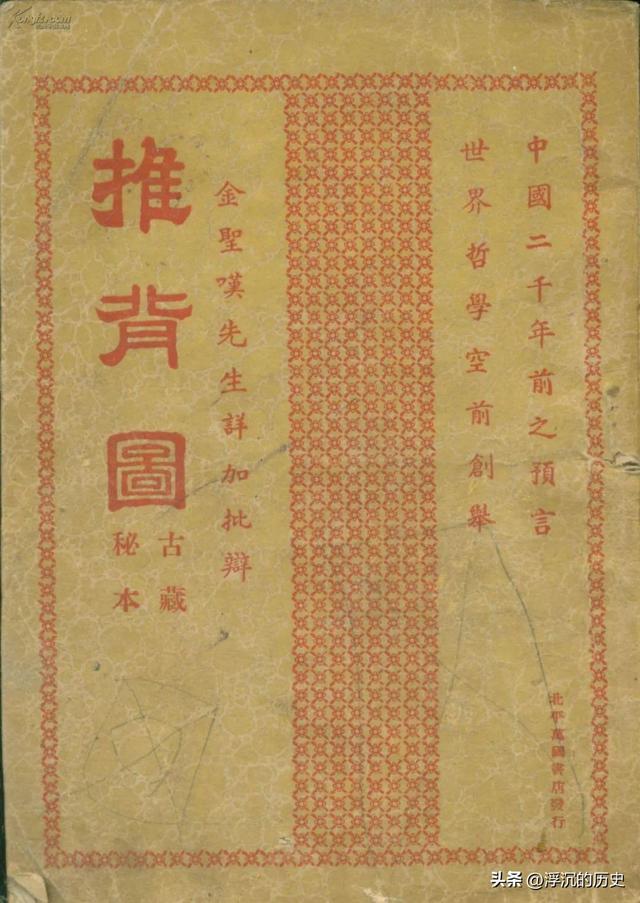 中國二千年前之預言
世界哲學空前創舉
金聖嘆先生詳加批辯
推背圖
古藏
秘本
北平萬國書店發行
Kongfz.com
头条 @浮沉的历史